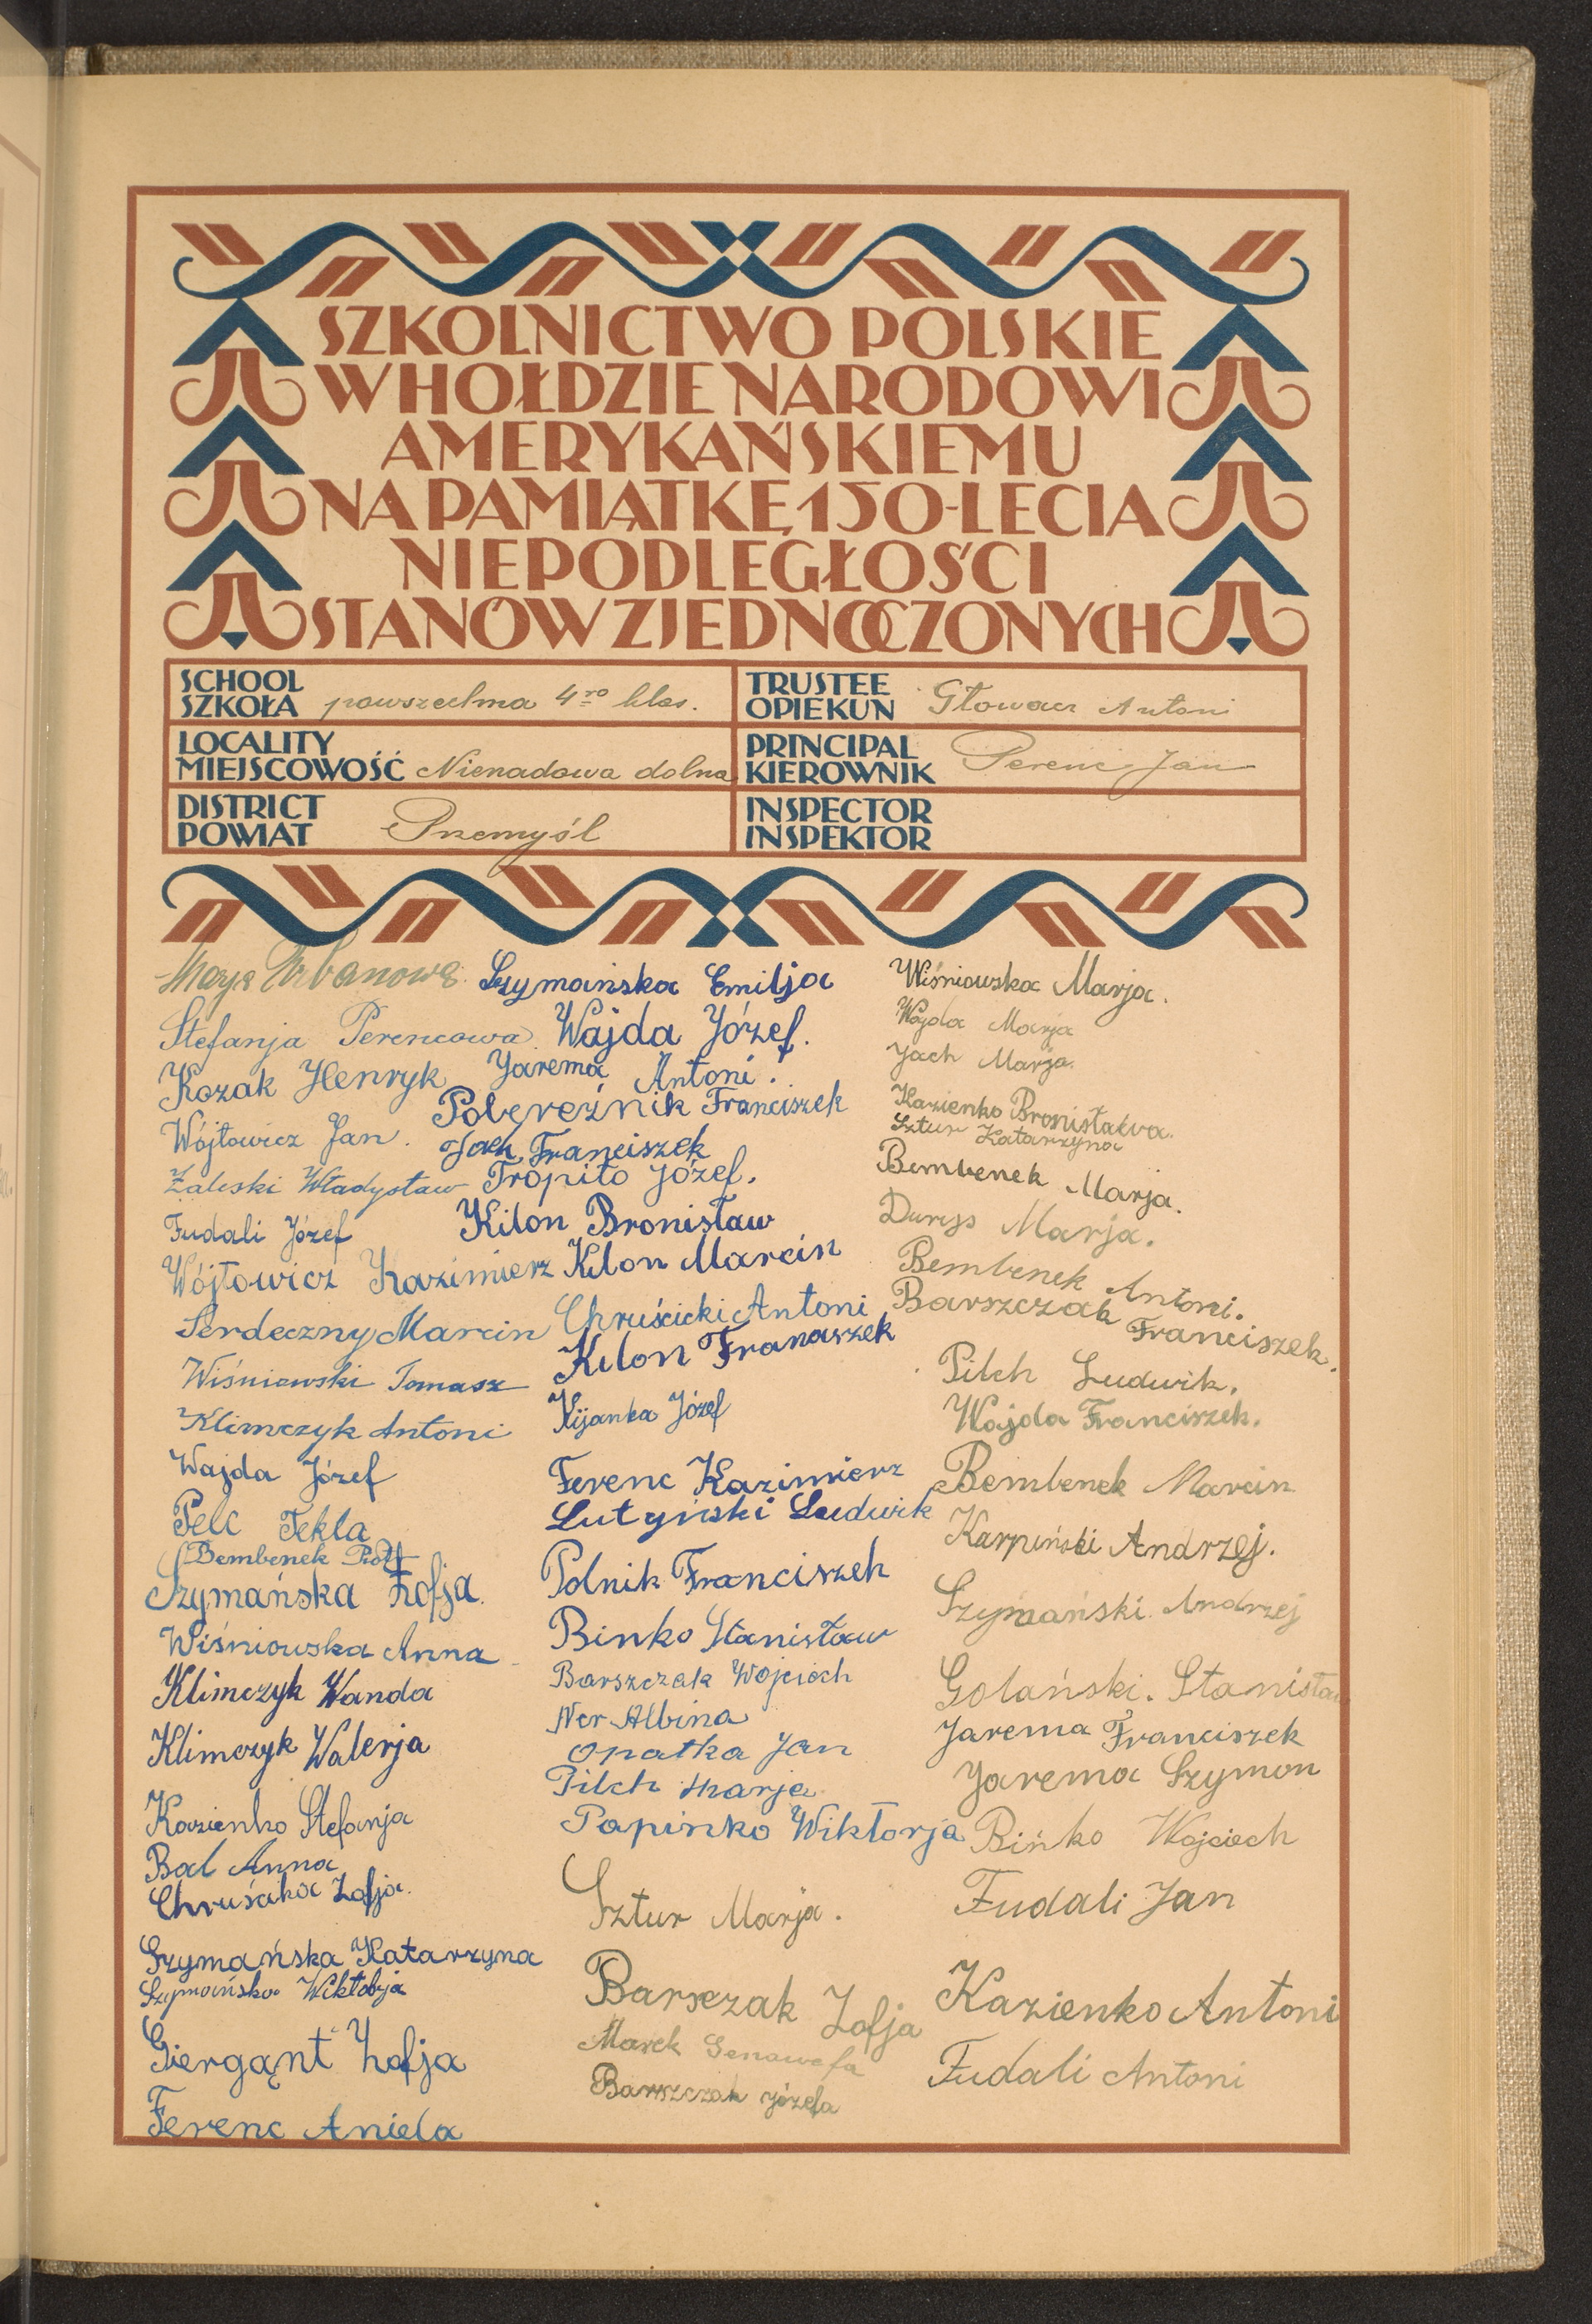 SZKOLNICTWO POLSKIE
W HOŁDZIE NARODOWI
AMERYKAŃSKIEMU
NA PAMIĄTKĘ 150-LECIA
NIEPODLEGŁOŚCI
STANÓW ZJEDNOCZONYCH
SCHOOL
SZKOŁA powszechna 4ro klas.
TRUSTEE
OPIEKUN Głowacz Antoni
LOCALITY
MIEJSCOWOŚĆ Nienadowa dolna
PRINCIPAL
KIEROWNIK Perenc Jan
DISTRICT
POWIAT Przemyśl
INSPECTOR
INSPEKTOR
Marja Urbanowa
Stefanja Perencowa
Kozak Henryk
Wójtowicz Jan.
Zaleski Władysław
Fudali Józef
Wójtowicz Kazimierz
Serdeczny Marcin
Wiśniewski Tomasz
Klimczyk Antoni
Wajda Józef
Pelc Tekla
Bembenek Piotr
Szymańska Zofja.
Wiśniowska Anna
Klimczyk Wanda
Klimczyk Walerja
Kazienko Stefanja
Bal Anna
Chruścicka Zofja.
Szymańska Katarzyna
Szymańska Wiktorja
Giergąnt Zofja
Ferenc Aniela
Szymańska Emilja
Wajda Józef.
Jarema Antoni.
Pobereźnik Franciszek
Jach Franciszek
Tropiło Józef.
Kilon Bronisław
Kilon Marcin
Chruścicki Antoni
Kilon Franciszek
Kijanka Józef
Ferenc Kazimierz
Lutyński Ludwik
Polnik Franciszek
Binko Stanisław
Barszczak Wojciech
Ner Albina
Opatka Jan
Pilch Marja
Papinko Wiktorja
Sztur Marja.
Barszczak Zofja
Marek Genowefa
Barszczak Józefa
Wiśniowska Marja.
Wajda Marja
Jach Marja.
Kazienko Bronisława.
Sztur Katarzyna
Bembenek Marja.
Durys Marja.
Bembenek Antoni.
Barszczak Franciszek.
Pilch Ludwik.
Wajda Franciszek.
Bembenek Marcin
Karpiński Andrzej.
Szymański Andrzej
Golański. Stanisław
Jarema Franciszek
Jarema Szymon
Bińko Wojciech
Fudali Jan
Kazienko Antoni
Fudali Antoni